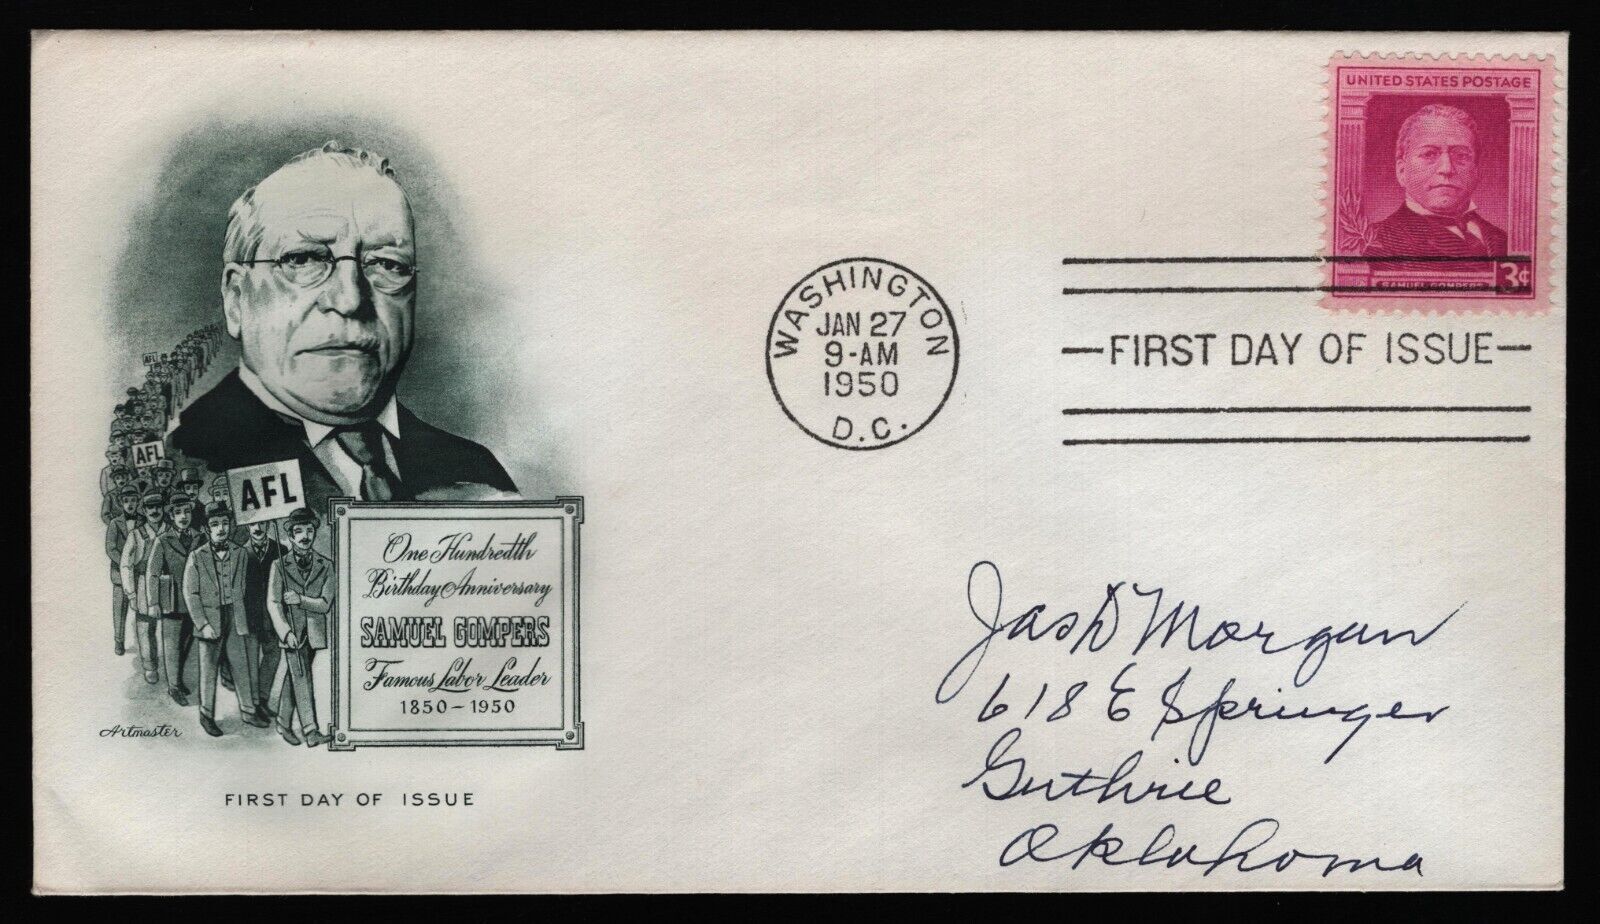 UNITED STATES POSTAGE
SAMUEL GOMPERS
3¢
WASHINGTON
JAN 27
9-AM
1950
D.C.
FIRST DAY OF ISSUE
AFL
AFL
AFL
One Hundredth
Birthday Anniversary
SAMUEL GOMPERS
Famous Labor Leader
1850-1950
Artmaster
FIRST DAY OF ISSUE
Jas D Morgan
618 E Springer
Guthrie
Oklahoma